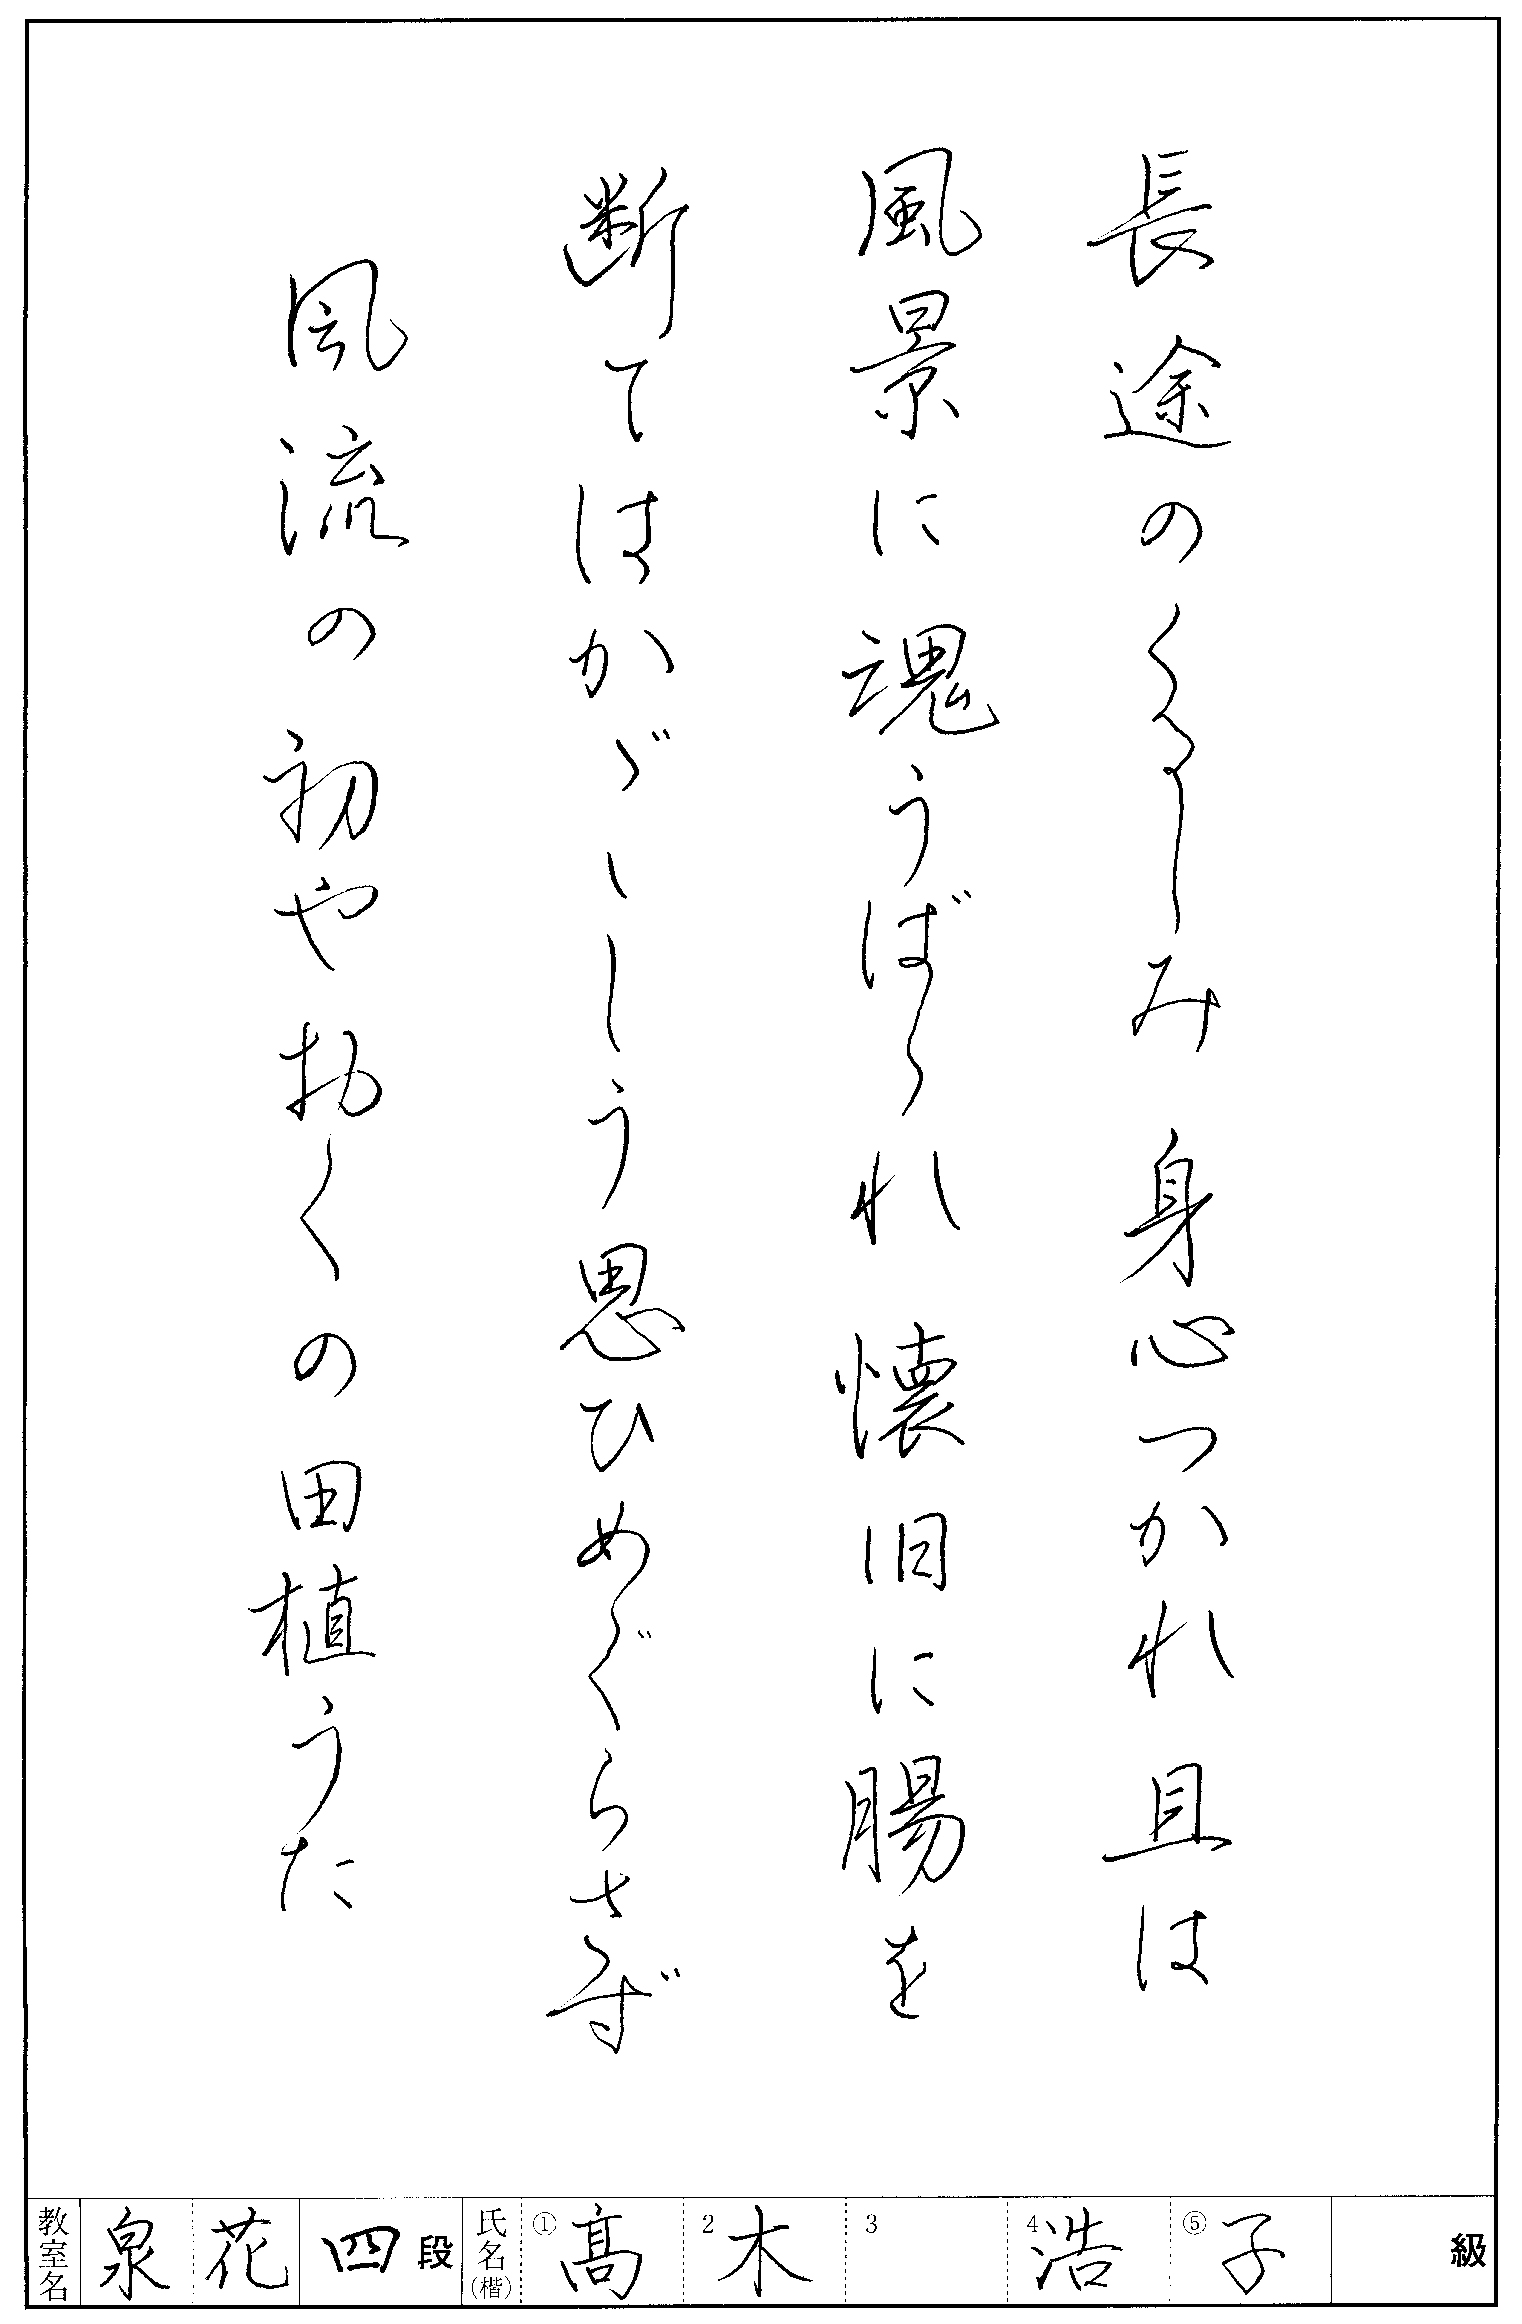 長途のくるしみ身心つかれ且は
風景に魂うばゝれ懐旧に腸を
断てはかゞゝしう思ひめぐらさず
風流の初やおくの田植うた
教室名 泉花 四段 氏名(楷) ①髙 2木 3 4浩 ⑤子 級